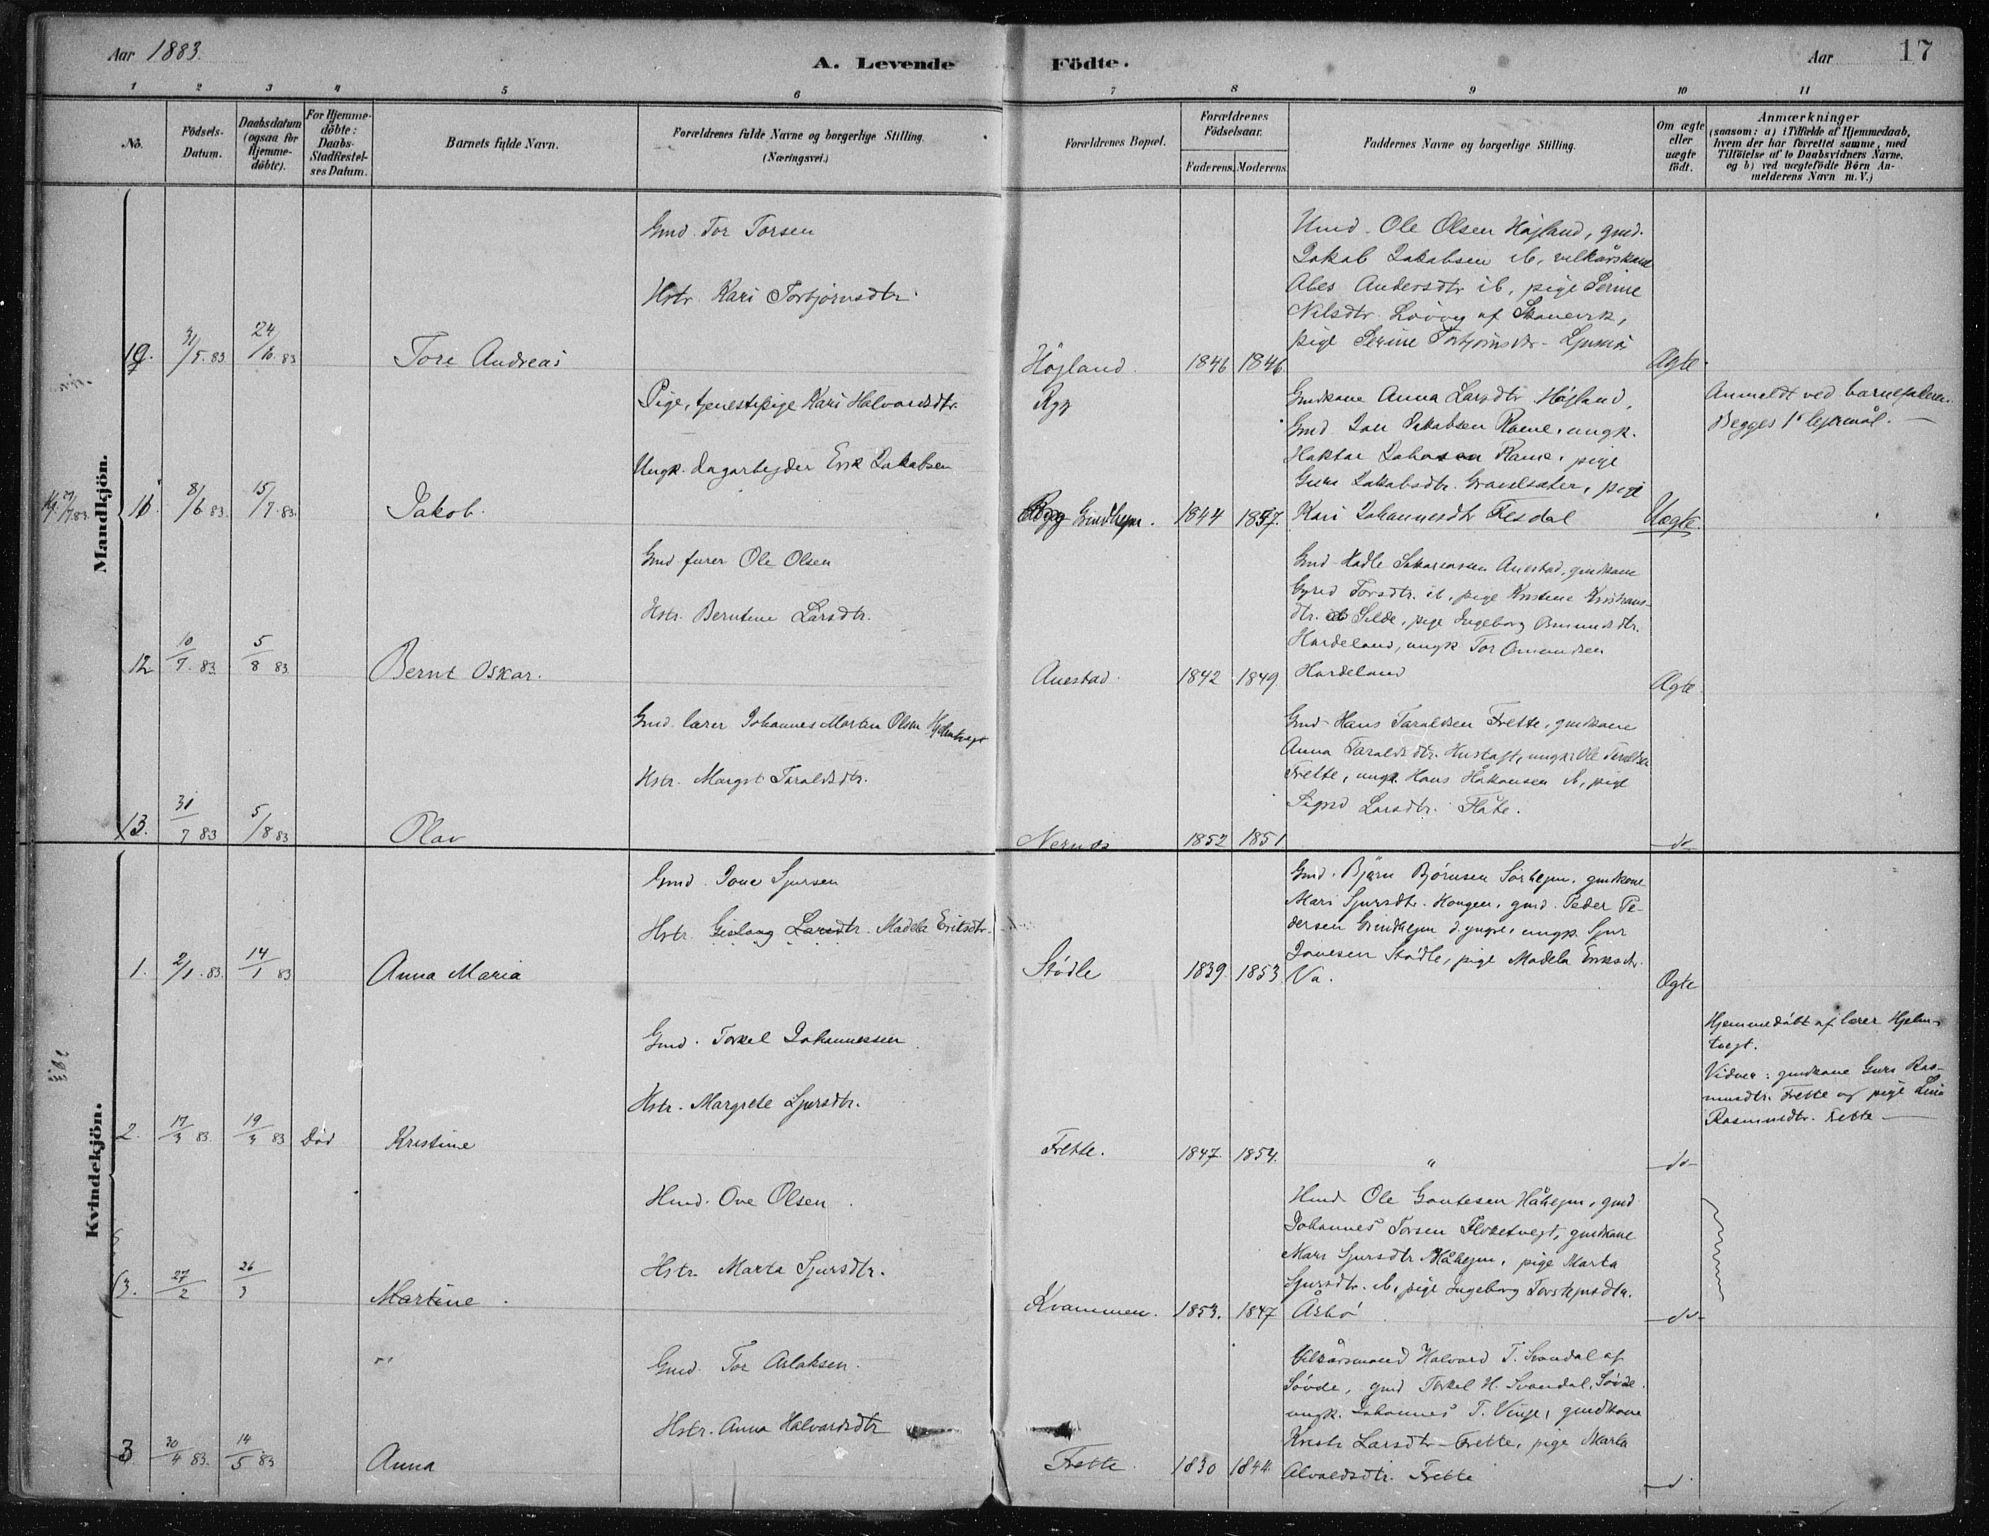 Aar 1883.
A. Levende Födte.
Aar
17
1 2 3 4 5 6 7 8 9 10 11
No.
Födsels-Datum.
Daabsdatum (ogsaa for Hjemmedöbte).
For Hjemmedöbte: Daabs-Stadfæstelses Datum.
Barnets fulde Navn.
Forældrenes fulde Navne og borgerlige Stilling. (Næringsvei.)
Forældrenes Bopæl.
Forældrenes Födselsaar.
Faderens. Moderens.
Faddernes Navne og borgerlige Stilling.
Om ægte eller uægte födt.
Anmærkninger
(saasom: a) i Tilfælde af Hjemmedaab, hvem der har forrettet samme, med Tilföielse af to Daabsvidners Navne, og b) ved uægtefödte Börn Anmelderens Navn m. V.)
Mandkjön.
Gmd. Tor Torsen
Hstr. Kari Torbjørnsdtr.
31/5. 83 24/6. 83
Tore Andreas
Højland. 1846 1846.
Hmd. Ole Olsen Højland, gmd.
Jakob Jakobsen ib, vilkårskone
Abes Andersdtr ib, pige Serine
Nilsdtr. af Skånevik,
pige Serine Torbjørnsdtr.
Ægte.
Pige, tjenestepige Kari Halvardsdtr.
Ungk. dagarbejder Erik Jakobsen
11. 8/6 83 15/7. 83.
Jakob.
Grindhejm. 1844 1857.
Gmdkone Anna Larsdtr Højland,
Gmd. Jakobsen Rame, ungk.
Rame, pige
Guri Jakobsdtr. pige
Kari Johannesdtr
Uægte.
Anmeldt ved barnefaderen.
Begges 1ste lejermål.
Gmd. Ole Olsen
Hstr. Berntine Larsdtr.
12 10/7. 83 5/8 83
Bernt Oskar.
Auestad. 1842 1849
Gmd Auestad, gmdkone
Gyrid Torsdtr. ib, pige Kristine Kristians-
dtr. Silde, pige Ingeborg dtr.
Hardeland, ungk Tor
Hardeland
Ægte
Gmd. lærer Johannes Morten Olsen Hjelmtvejt
Hstr. Margit Taraldsdtr.
13. 31/7 83 5/8 83
Olav
Nernes 1852 1851
Gmd. Hans Taraldsen Frette, gmdkone
Anna Taraldsdtr. Hustoft, ungk. Ole Taraldsen
Frette, ungk. Hans Håkonsen ib, pige
Sigrid Larsdtr. Flåte.
do
Kvindekjön.
Gmd. Jone Sjursen
Hstr. Larsdtr. Madela Eriksdtr.
1. 2/1. 83. 14/1 83
Anna Maria
Stødle 1839. 1853.
Gmd. Bjørn Bjørnsen Sørhejm, gmdkone
Mari Sjursdtr. Haugen, gmd. Peder Pe-
dersen Grindhejm d. yngre, ungk. Sjur
Jonesen Stødle, pige Madela Eriksdtr.
Va.
Ægte
Gmd. Torkel Johannessen
Hstr. Margrete Sjursdtr.
2. 17/3 83. 19/3 83 Død
Kristine
Frette. 1847. 1854.
"
do
Hjemmedøbt af lærer Hjelm-
tvejt.
Vidner: gmdkone Guri Ras-
musdtr. Frette og pige Lina
Rasmusdtr. Frette
Hmd. Ove Olsen
Hstr. Marta Sjursdtr.
3. 27/2 26/3
Martine.
Kvammen. 1853. 1847
Hmd Ole Gautesen Håhejm, gmd
Johannes Torsen Floketvejt, gmdkone
Mari Sjursdtr Håhejm, pige Marta
Sjursdtr. ib, pige Ingeborg Torstejnsdtr.
Åsbø
do
Gmd. Tor Aslaksen.
Hstr. Anna Halvardsdtr
3 30/4 83. 14/5 83
Anna
Frette. 1830 1844.
Vilkårsmand Halvard T. Svandal af
Søvde, gmd Torkel H. Svandal, Søvde.
ungk. Johannes T. Vinje, gmdkone
Kristi Larsdtr Frette, pige Marta
Frette